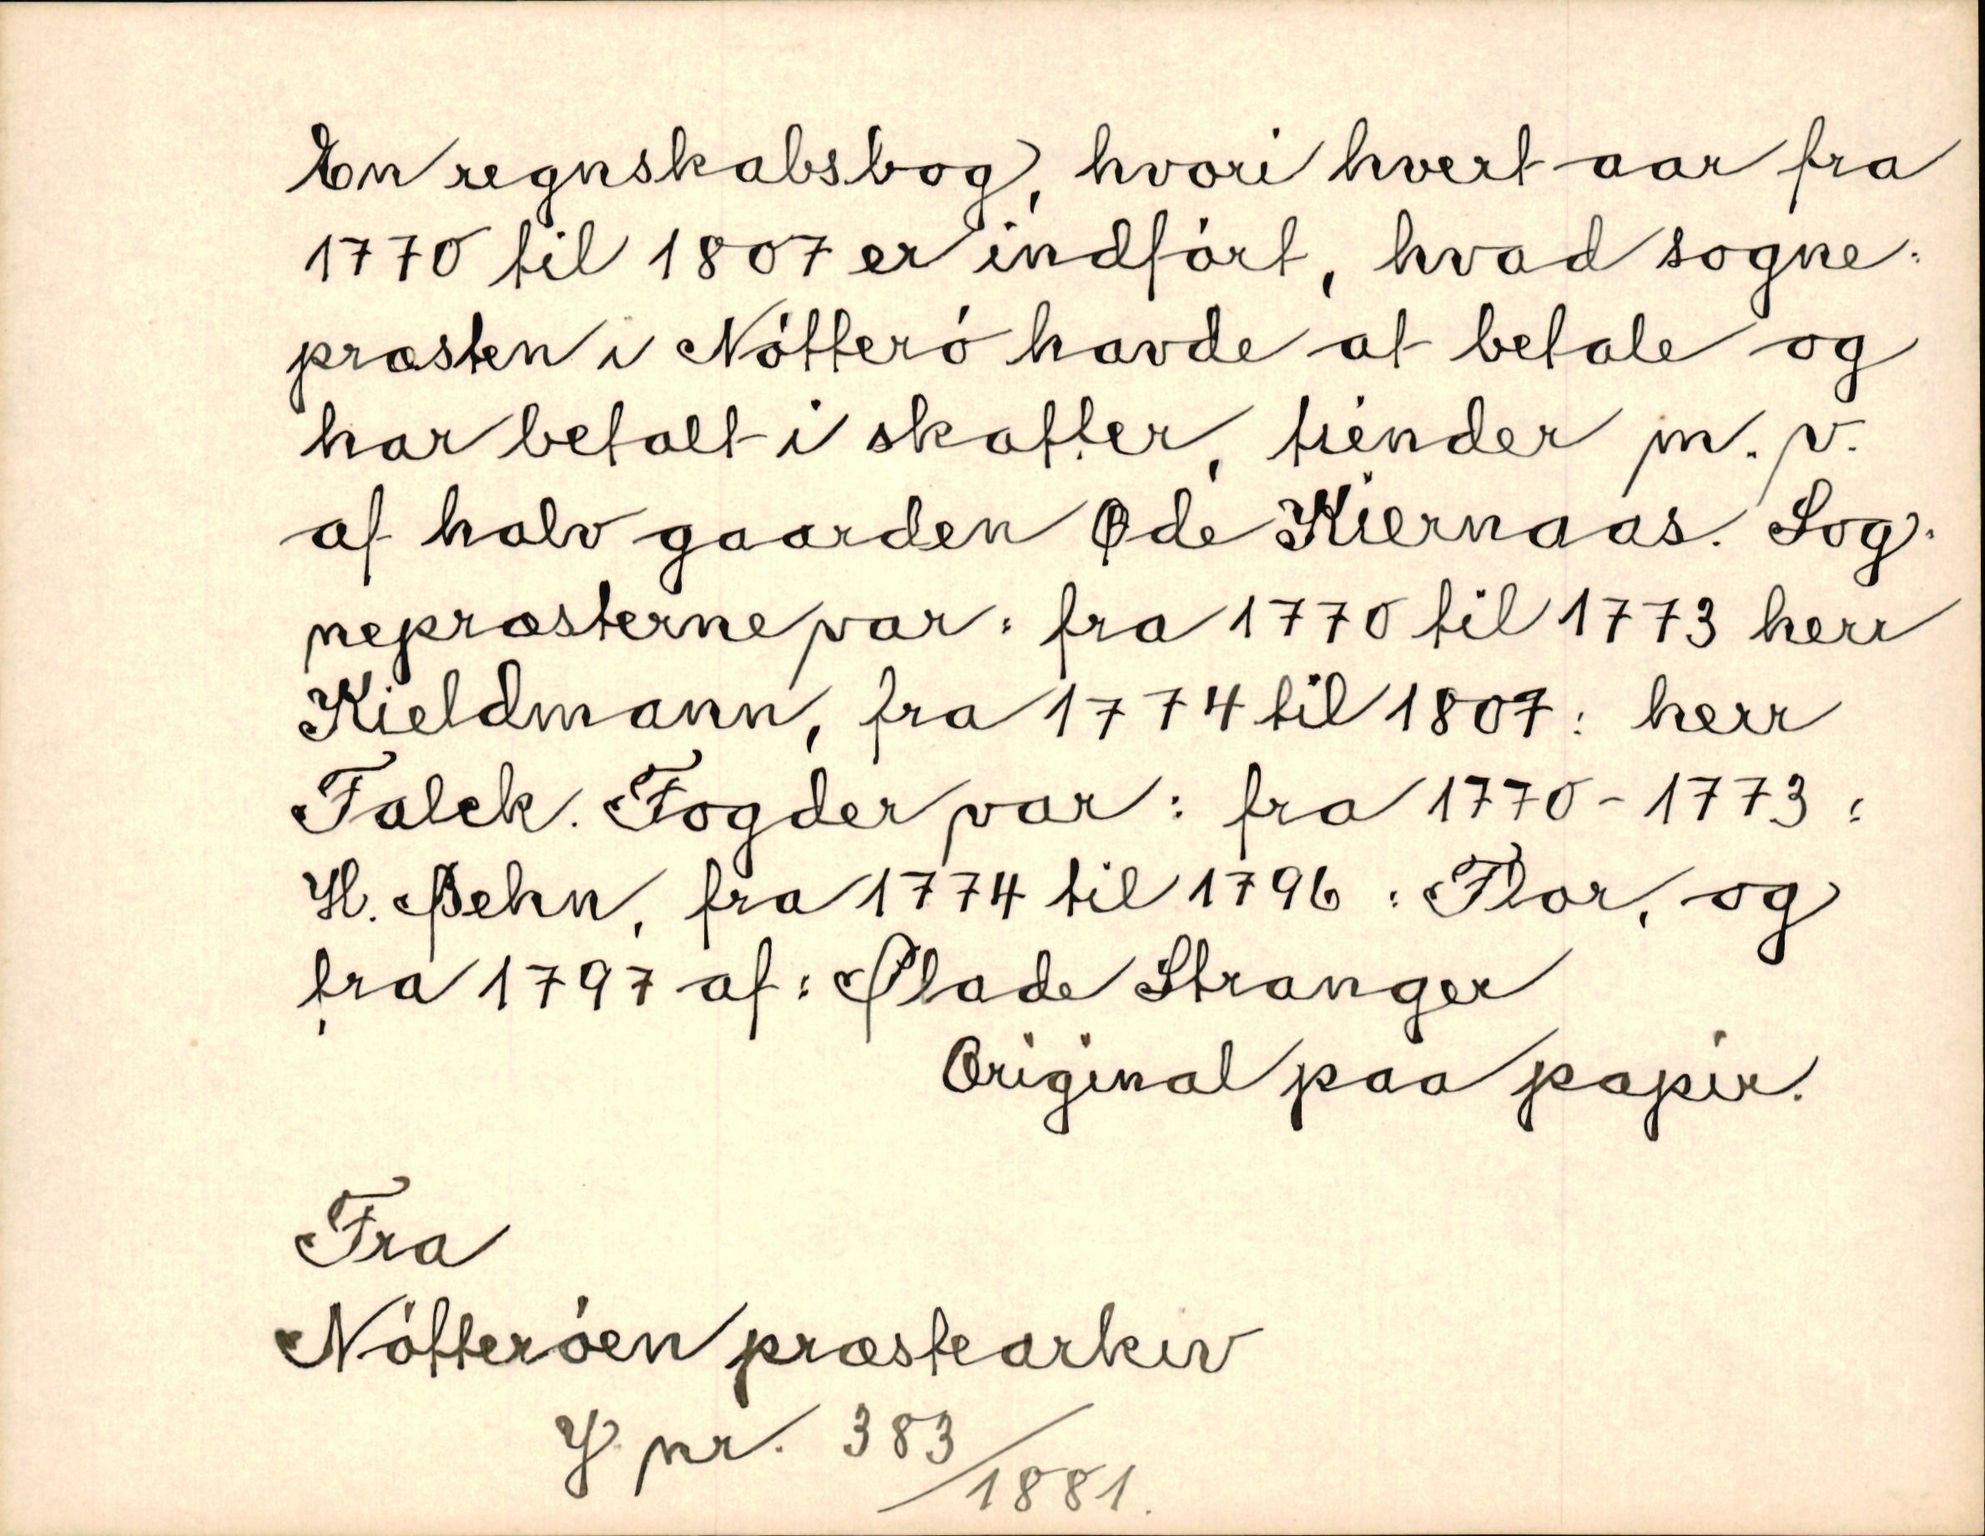 En regnskabsbog, hvori hvert aar fra
1770 til 1807 er indført, hvad sogne-
præsten i Nøtterø havde at betale og
har betalt i skatter, tiender m. v.
af halv gaarden Øde Kiernaas. Sog-
nepræsterne var: fra 1770 til 1773 herr
Kieldmann, fra 1774 til 1807: herr
Falck. Fogder var: fra 1770-1773:
H. Pehn, fra 1774 til 1796: Flor, og
fra 1797 af: Plade Stranger
Original paa papir.
Fra
Nøtterøen præstearkiv
J nr. 383/1881.